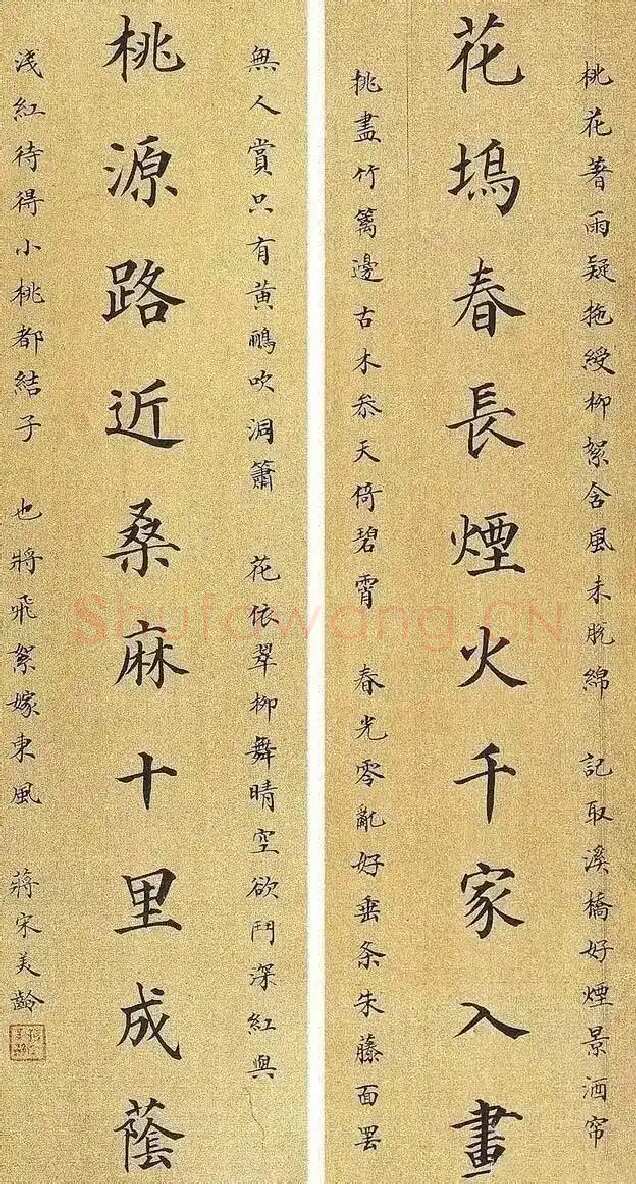 桃花著雨疑拖綬柳絮含風未脫綿 記取溪橋好煙景酒帘
花塢春長煙火千家入畫
挑盡竹籬邊古木參天倚碧霄 春光零亂好垂条朱藤面罢
無人賞只有黃鸝吹洞簫 花依翠柳舞晴空欲鬥深紅與
桃源路近桑麻十里成蔭
淺紅待得小桃都結子 也將飛絮嫁東風 蔣宋美齡
Shufawang.CN